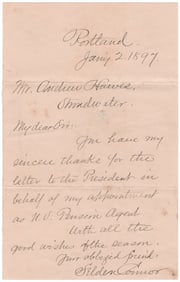 Portland.
Jan'y 2. 1897.
Mr. Andrew Hawes,
My dear Sir:
You have my
sincere thanks for the
letter to the President in
behalf of my appointment
as U.S. Pension Agent
With all the
good wishes of the season.
Your obliged friend
Selden Connor